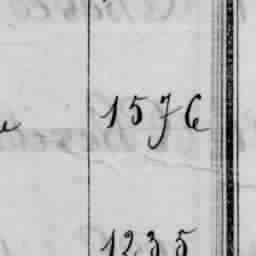 1576
1235